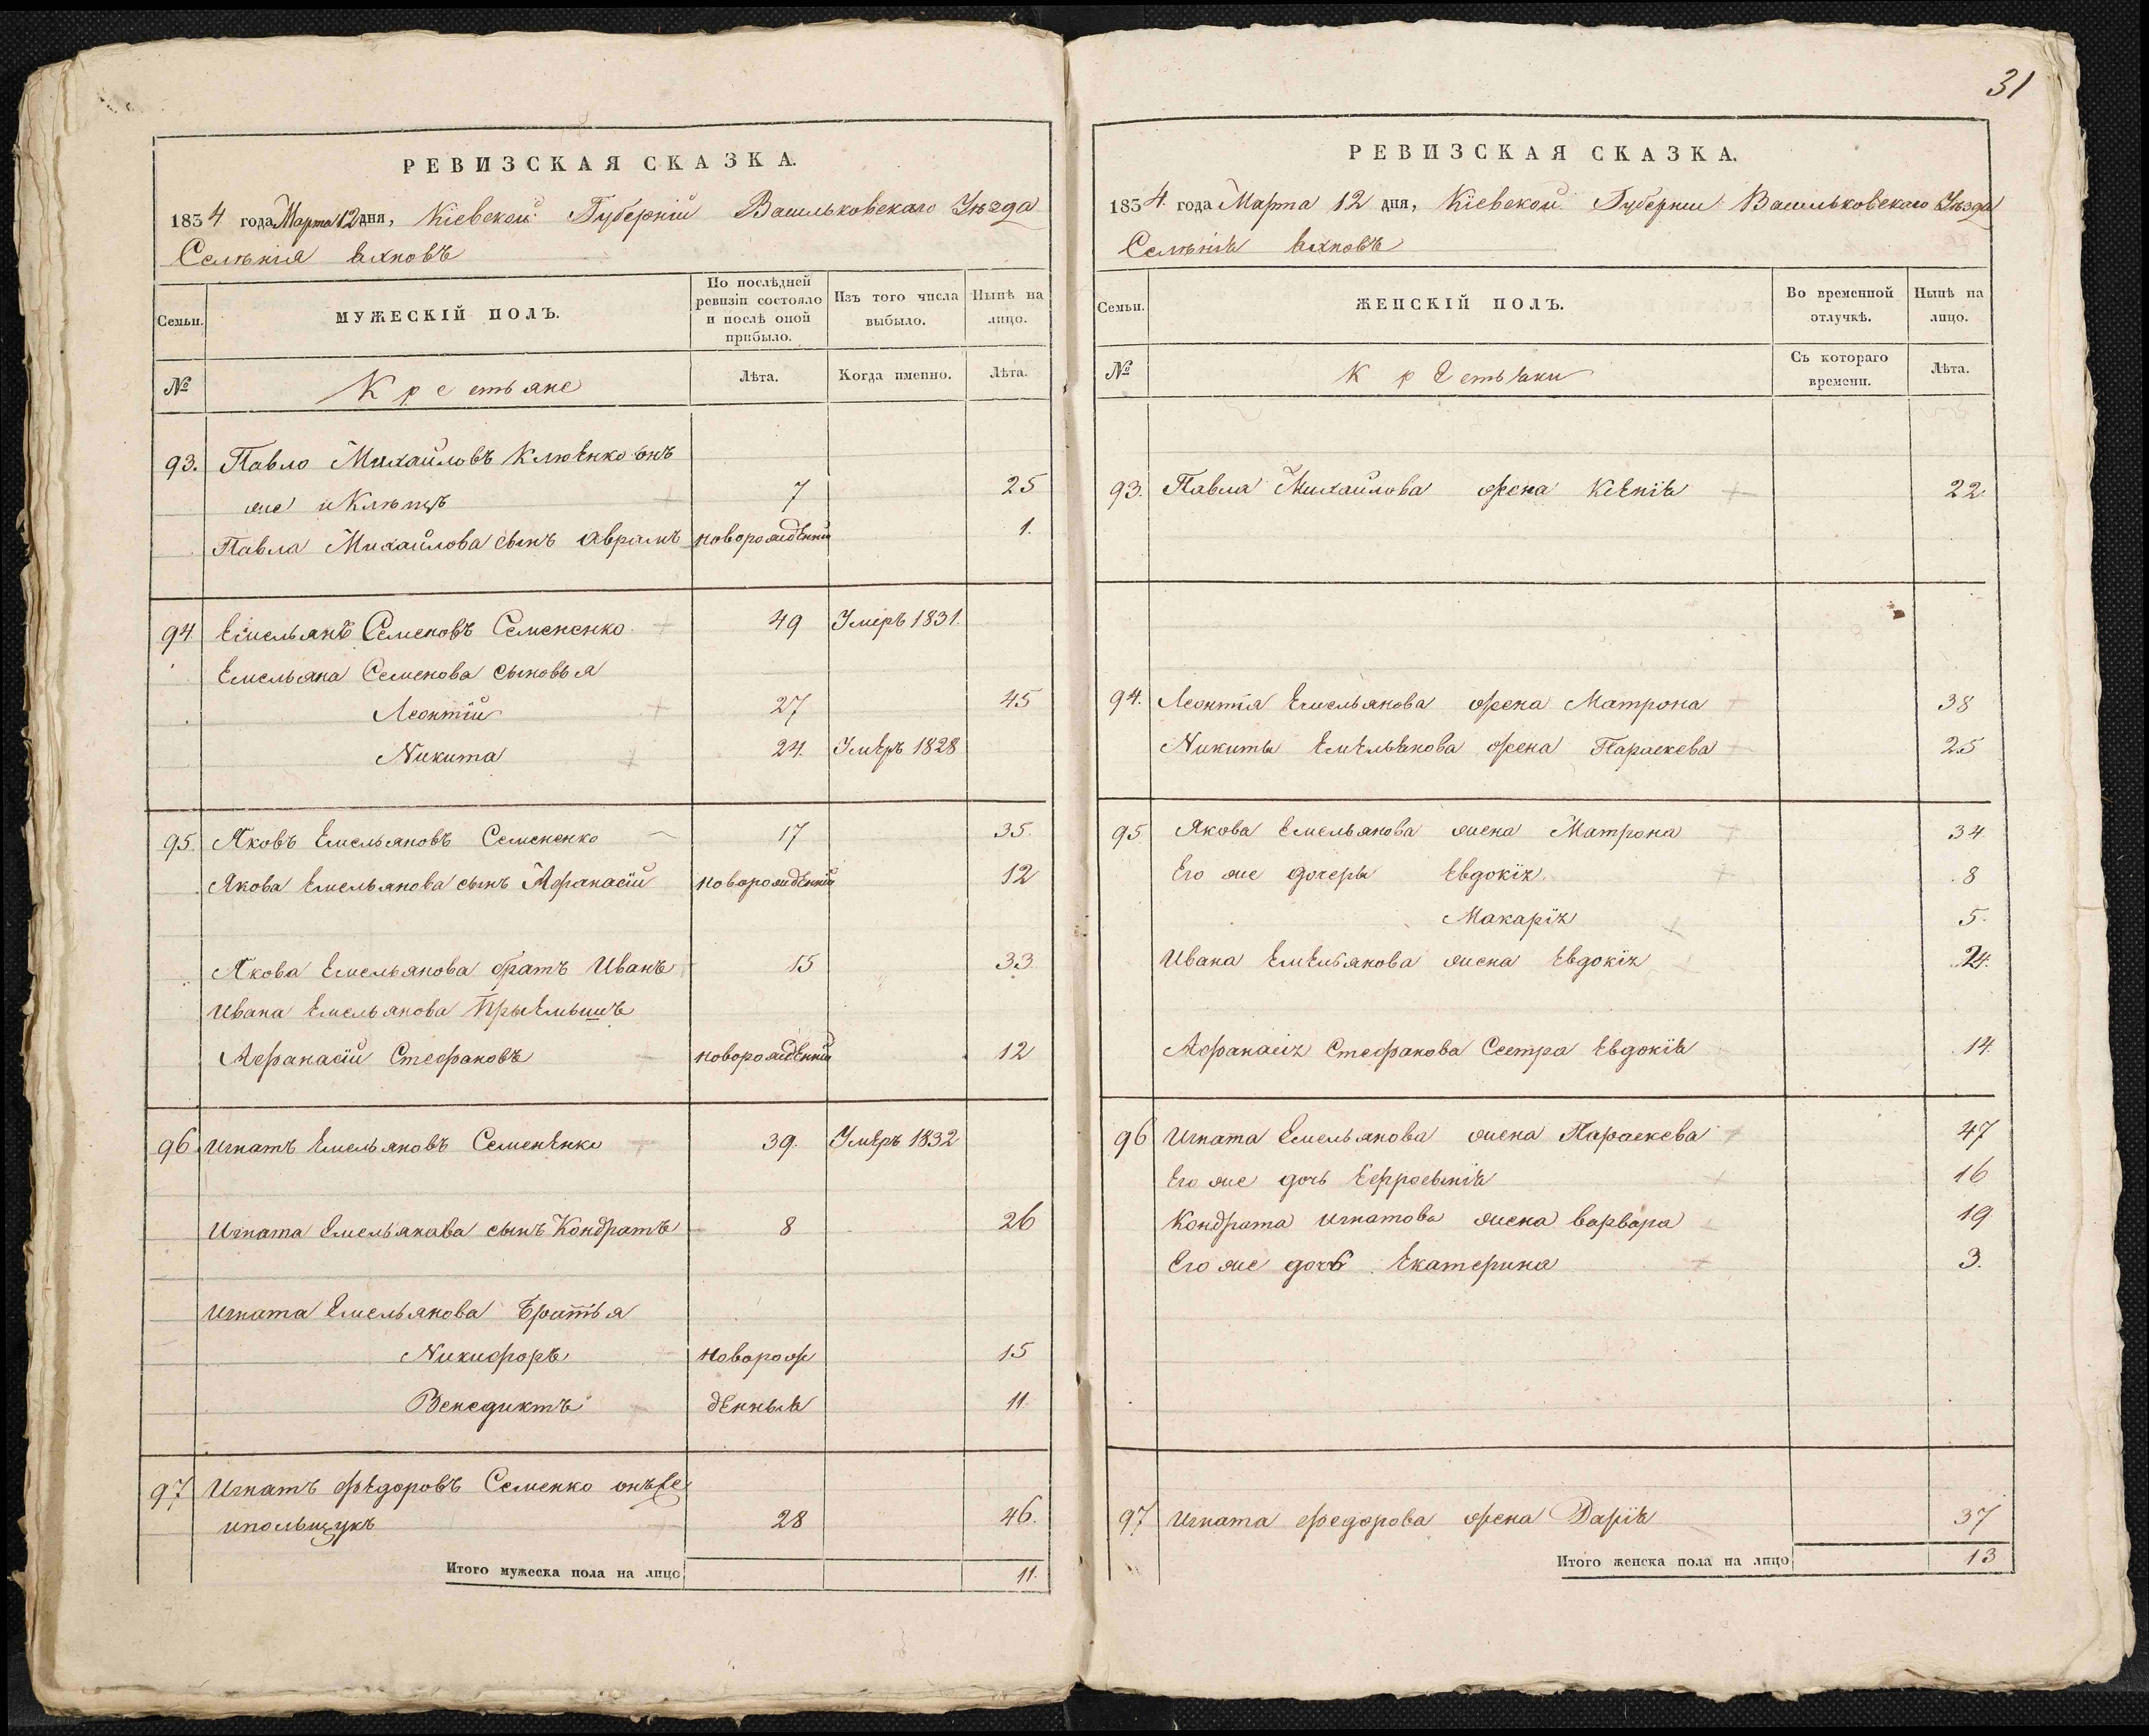 31
РЕВИЗСКАЯ СКАЗКА.
1834 года Марта 12 дня, Кіевской Губерніи Васильковскаго Уѣзда
Селѣнія Яхновъ
Семьи.
МУЖЕСКІЙ ПОЛЪ.
По послѣдней ревизіи состояло и послѣ оной прибыло.
Изъ того числа выбыло.
Нынѣ на лицо.
№
Крестьяне
Лѣта.
Когда именно.
Лѣта.
93. Павло Михайловъ Клюенко онъ
же и Клѣпцъ 7 25
Павла Михайлова сынъ Аврамъ новорожденній 1.
94 Емельянъ Семеновъ Семененко 49 Умеръ 1831.
Емельяна Семенова сыновья
Леонтій 27 45
Никита 24. Умеръ 1828
95. Яковъ Емельяновъ Семененко 17 35.
Якова Емельянова сынъ Афанасій новорожденній 12
Якова Емельянова братъ Иванъ 15 33
Ивана Емельянова Прыемышъ
Афанасій Стефановъ новорожденній 12
96 Игнатъ Емельяновъ Семененко 39. Умеръ 1832
Игната Емельянава сынъ Кондратъ 8 26
Игната Емельянова Братья
Никифоръ новорож 15
Венедиктъ денныя 11.
97 Игнатъ Федоровъ Семенко онъже
ипольщукъ 28 46.
Итого мужеска пола на лицо 11.
РЕВИЗСКАЯ СКАЗКА.
1834. года Марта 12 дня, Кіевской Губерніи Васильковскаго Уѣзда
Селѣнія Яхновъ
Семьи.
ЖЕНСКІЙ ПОЛЪ.
Во временной отлучкѣ.
Нынѣ на лицо.
№
Крестьянки
Съ котораго времени.
Лѣта.
93. Павла Михайлова жена Ксенія 22.
94. Леонтія Емельянова жена Матрона 38
Никиты Емельянова жена Параскева 25
95 Якова Емельянова жена Матрона 34
Его же дочеры Евдокія 8
Макарія 5.
Ивана Емельянова жена Евдокія 24.
Афанасія Стефанова Сестра Евдокія 14.
96 Игната Емельянова жена Параскева 47
Его же дочь Ефросынія 16
Кондрата Игнатова жена Варвара 19
Его же дочь Екатерина 3.
97 Игната Федорова жена Дарія 37
Итого женска пола на лицо 13